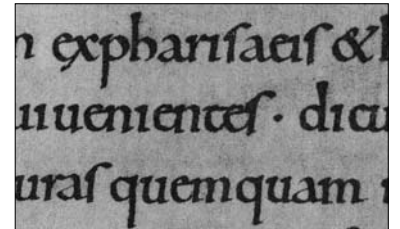 n expharisaeis &h
uiuenientes · dicu
uras quemquam